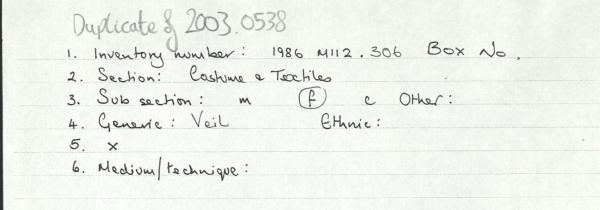 Duplicate of 2003.0538
1. Inventory number: 1986 M112.306 Box No.
2. Section: Costume & Textiles
3. Sub section: m f c Other:
4. Generic: Veil Ethnic:
5. x
6. Medium/technique: